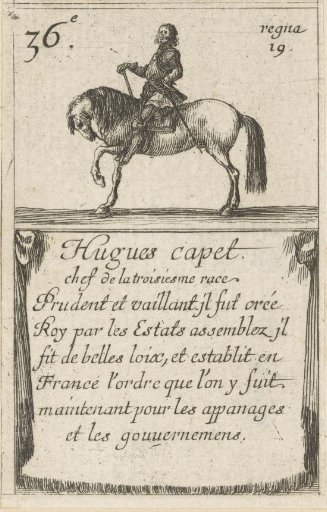 36.e
regna
19.
Hugues capet.
chef de la troisiesme race
Prudent et vaillant, jl fut creé
Roy par les Estats assemblez, jl
fit de belles loix, et establit en
France l'ordre que l'on y suit
maintenant pour les appanages
et les gouuernemens.